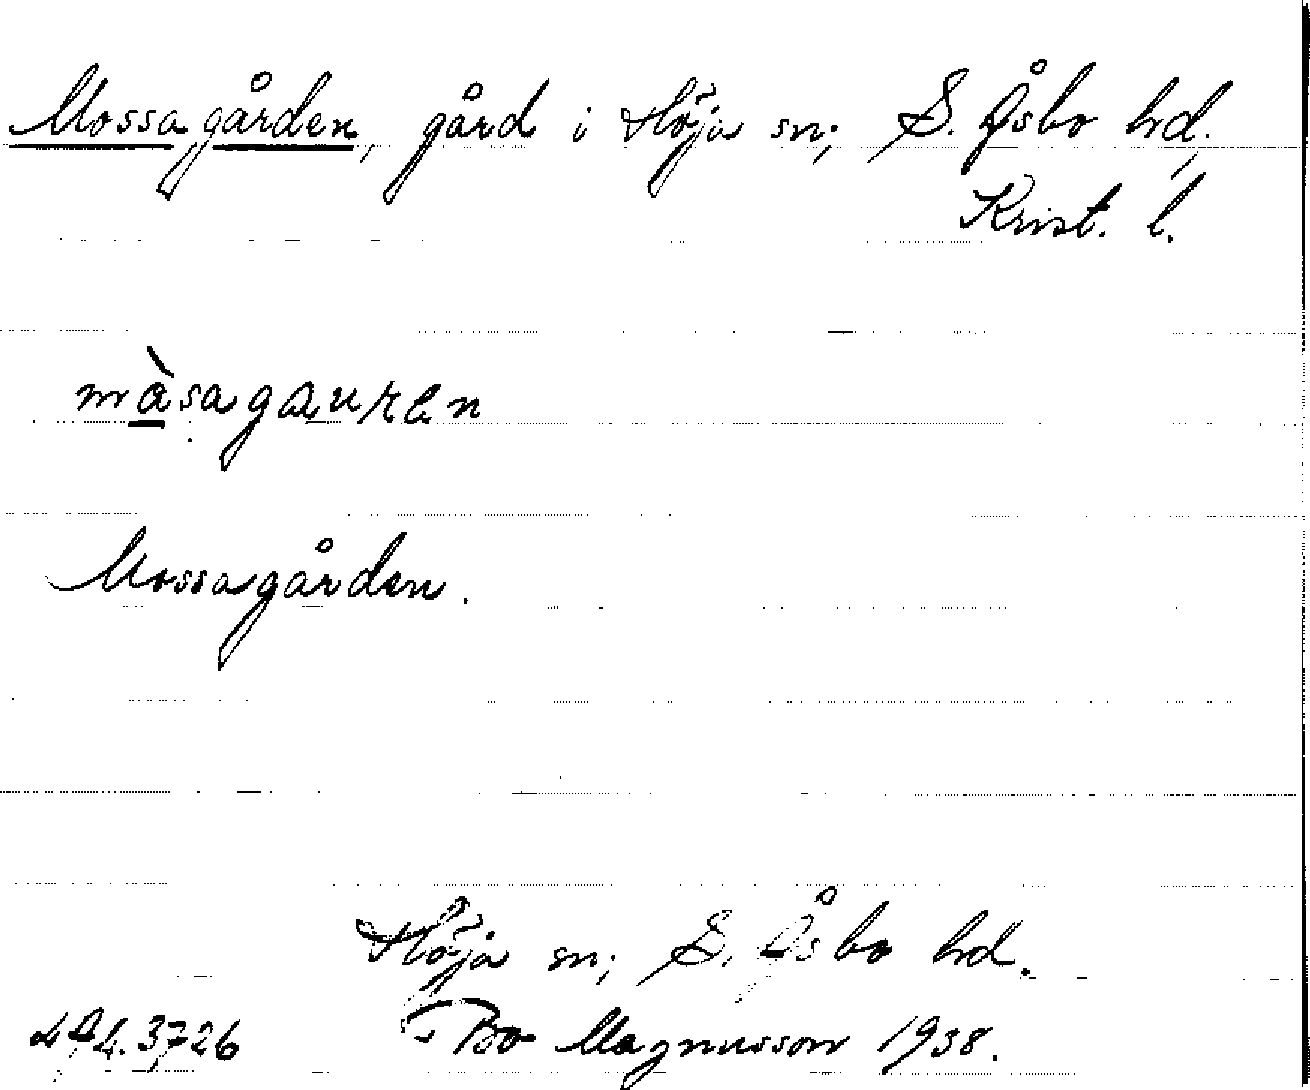 Mossagården, gård i Höja sn; S. Åsbo hd,
Krist. l.
màsagauren
Mossagården.
Höja sn; S. Åsbo hd.
Bo Magnusson 1938.